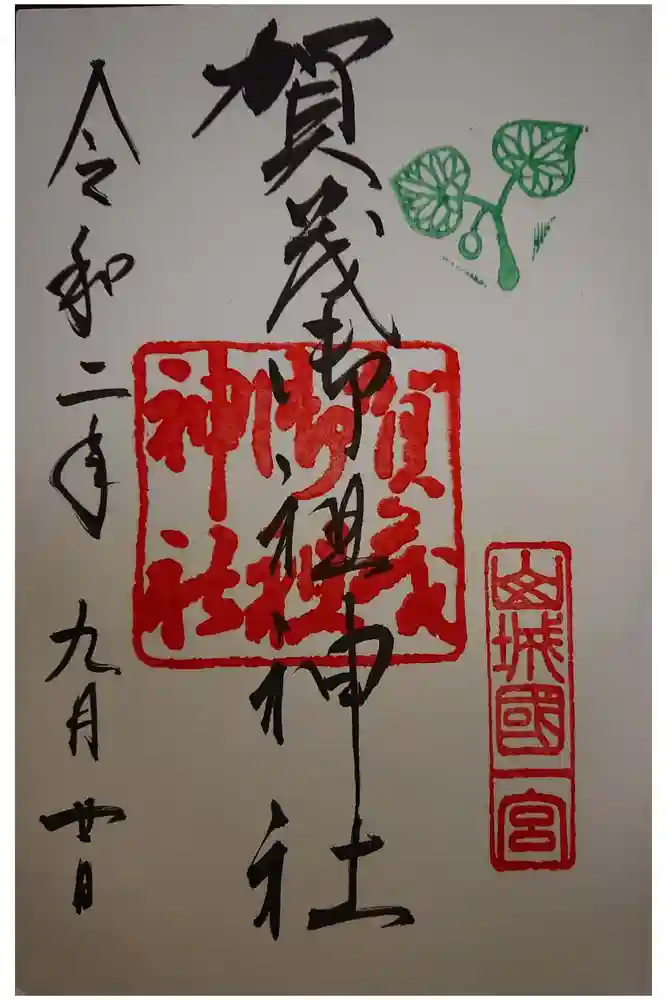 山城國一宮
賀茂御祖神社
賀茂御祖神社
令和二年九月廿日